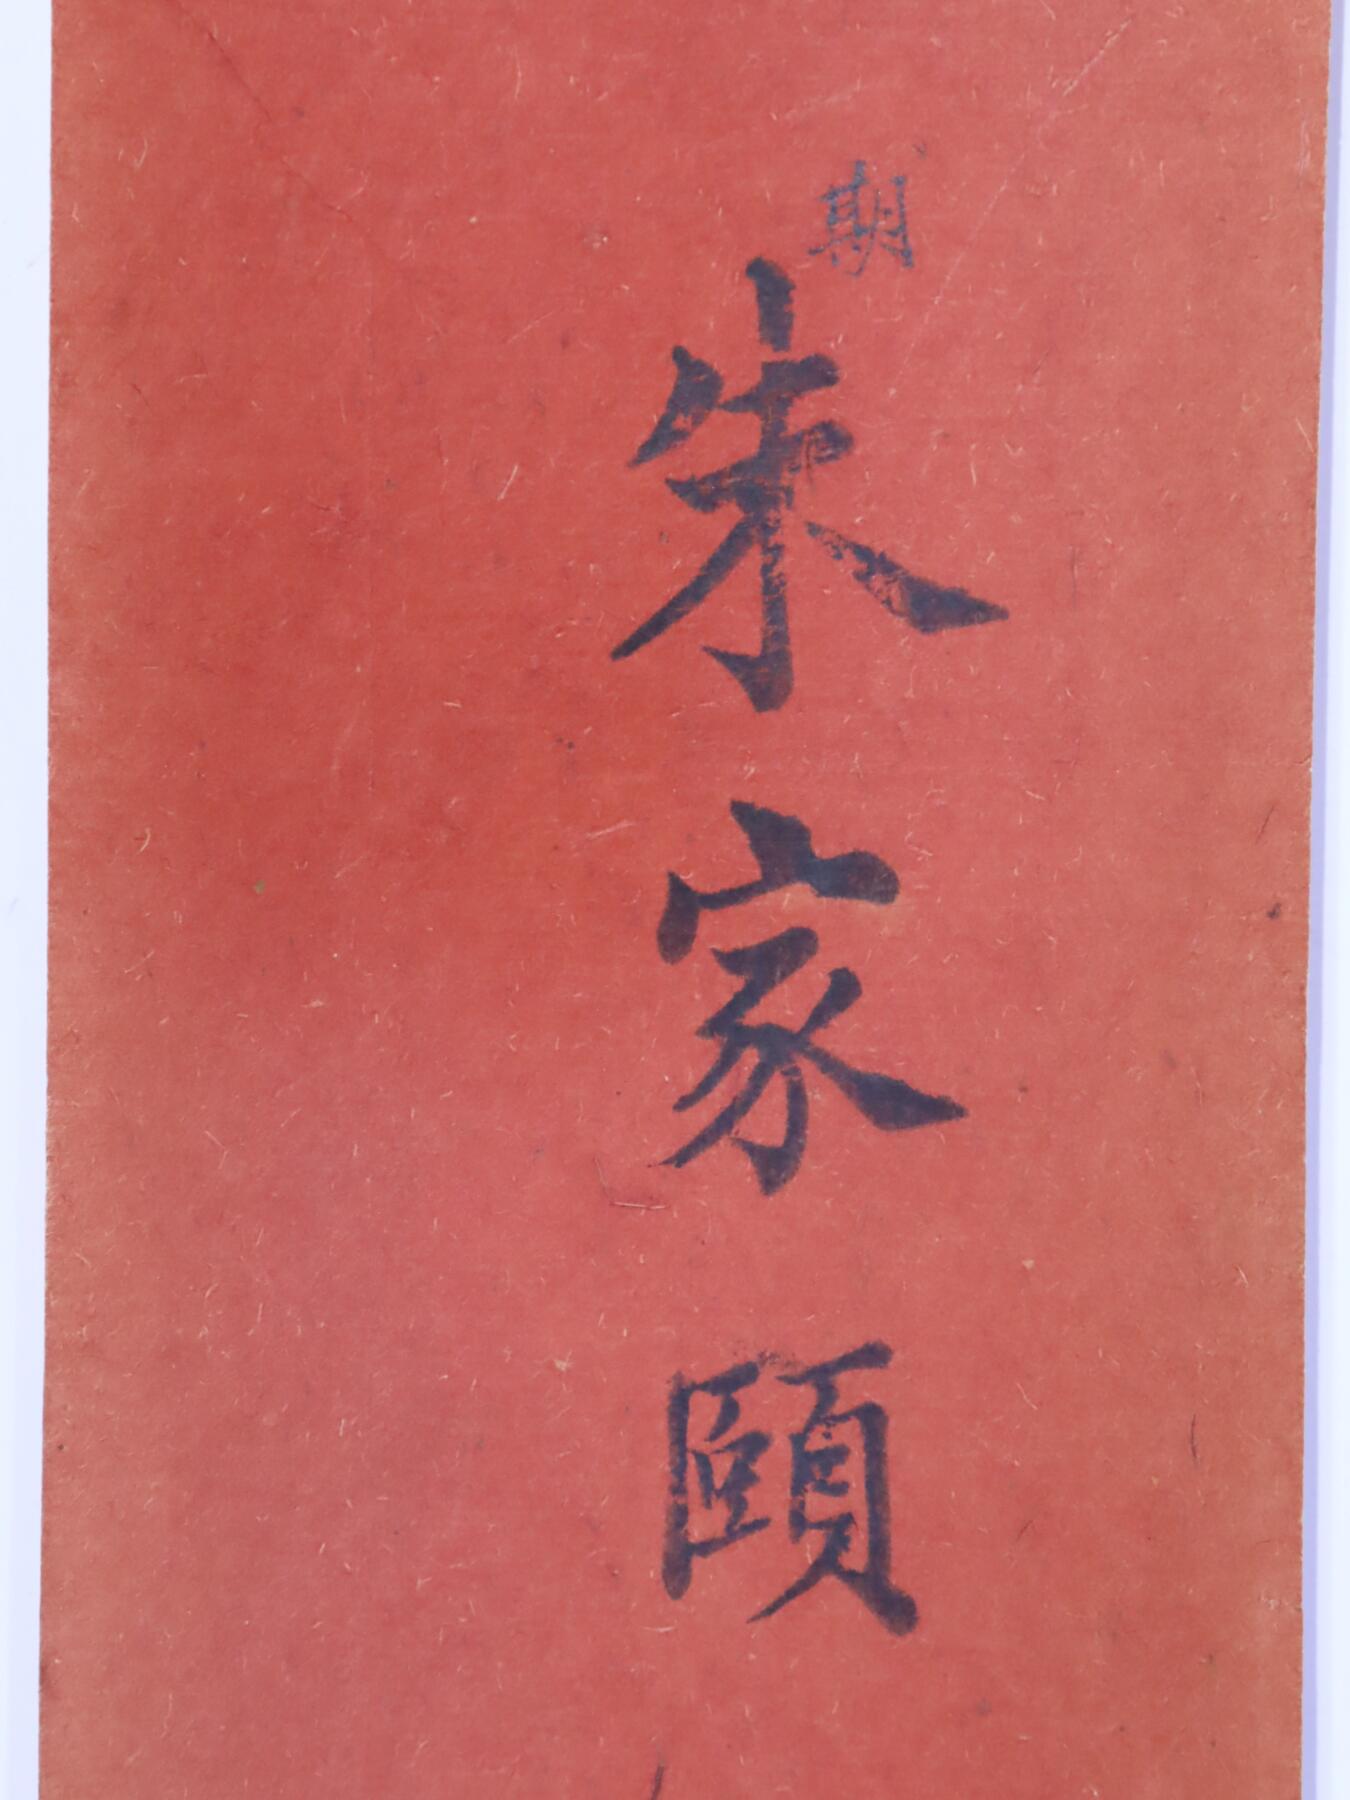 期
朱家頤